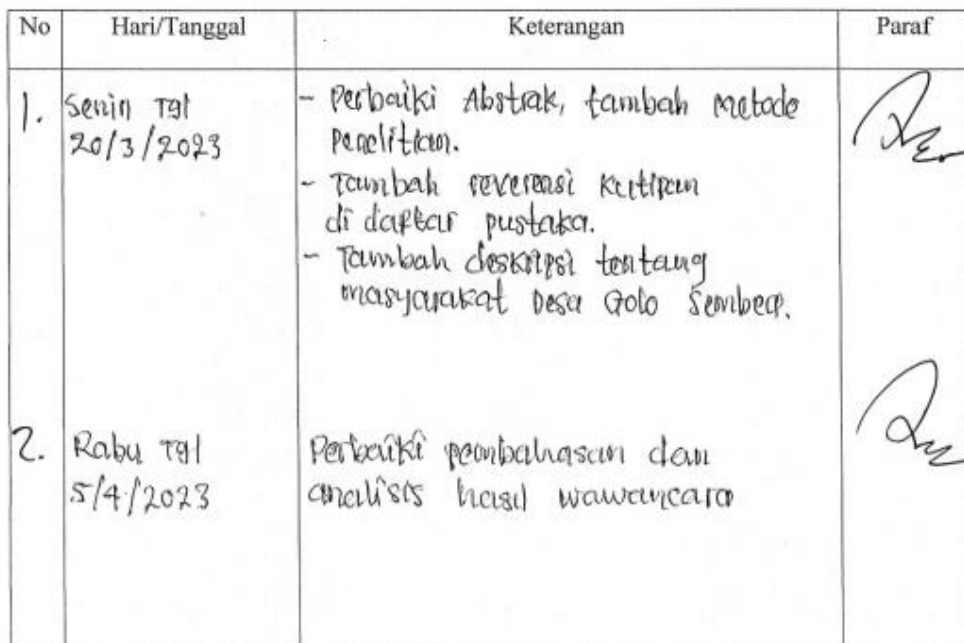 No Hari/Tanggal Keterangan Paraf
1. Senin Tgl - Perbaiki Abstrak, tambah metode
20/3/2023 Penelitian.
- Tambah reverensi kutipan
di daftar pustaka.
- Tambah deskripsi tentang
masyarakat Desa Golo Sembea.
2. Rabu Tgl Perbaiki pembahasan dan
5/4/2023 analisis hasil wawancara